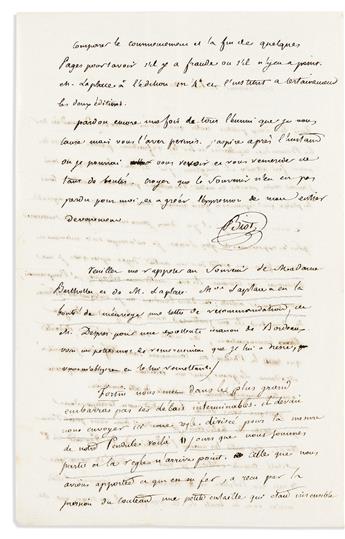 comparer le commencement et la fin de quelques
Pages pour savoir s'il y a fraude ou s'il n'y en a point.
M. Laplace a l'édition in 4° et l'institut a certainement
les deux éditions.
pardon encore une fois de tous l'ennui que je vous
cause mais vous l'avez permis. j'aspire après l'instant
où je pourrai vous revoir et vous remercier de
tant de bontés, croyez que le souvenir n'en est pas
perdu pour moi, et agréer l'expression de mon entier
devouement.
Biot
Veuillez me rappeler au souvenir de Madame
Berthollet et de M. Laplace. Mme Laplace a eu la
bonté de m'envoyer une lettre de recommandation, de
M. pour une excellente maison de Bordeaux
les remerciemens que je lui
vous m'obligerez en le lui remettant.
Fortin nous met dans le plus grand
embarras par ses délais interminables. il devait
nous envoyer ici une règle divisée pour la mesure
de notre Pendule. voilà jours que nous sommes
partis et la règle n'arrive point. Celle que nous
avions apportée et qui est en fer, a reçu par la
pression du couteau une petite entaille qui étant insensible